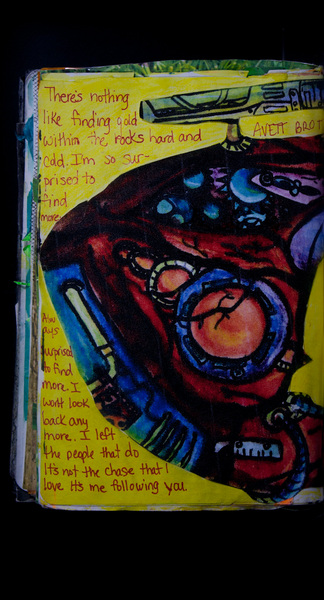 There's nothing
like finding gold
within the rocks hard and
cold. I'm so sur-
prised to
find
more
Alw
ays
surprised
to find
more. I
wont look
back any
more. I left
the people that do
It's not the chase that I
love It's me following you.
AVETT BROT